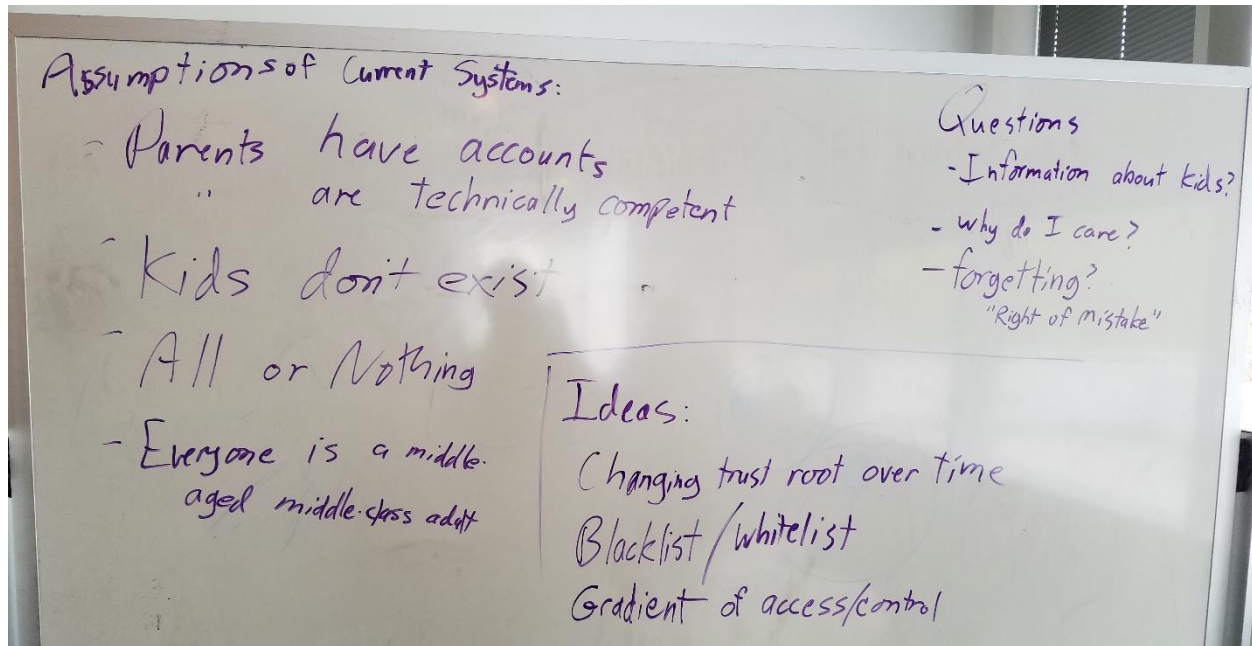 Assumptions of Current Systems:
- Parents have accounts
" are technically competent
- Kids don't exist
- All or Nothing
- Everyone is a middle-
aged middle-class adult
Questions
- Information about kids?
- Why do I care?
- forgetting?
"Right of Mistake"
Ideas:
Changing trust root over time
Blacklist/whitelist
Gradient of access/control